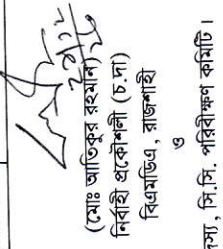 (মোঃ আতিকুর রহমান)
নির্বাহী প্রকৌশলী (চ.দা)
বিএমডিএ, রাজশাহী
ও
সদস্য, সি.সি. পরিবীক্ষণ কমিটি।